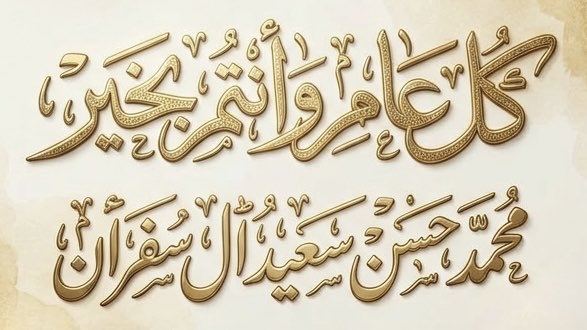 كل عام وأنتم بخير
محمد حسن سعيد آل سفران